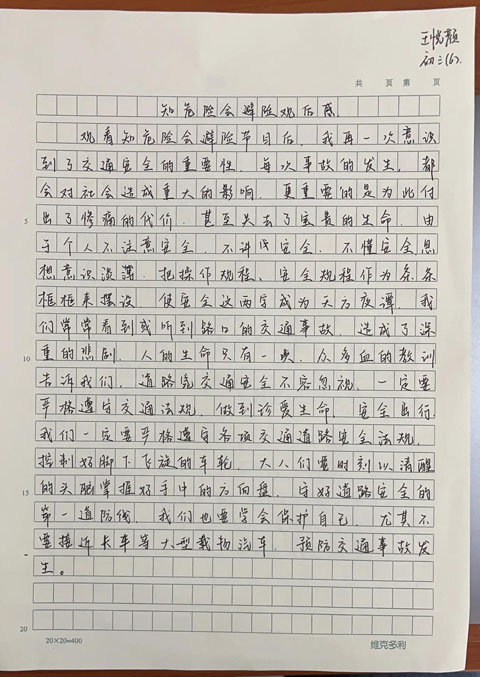 王悦颜
初三(6).
共 页 第 页
知危险会避险观后感
观看知危险会避险节目后,我再一次意识
到了交通安全的重要性.每次事故的发生,都
会对社会造成重大的影响.更重要的是为此付
5 出了惨痛的代价.甚至失去了宝贵的生命.由
于个人不注意安全.不讲安全.不懂安全思
想意识淡薄.把操作规程、安全规程作为条条
框框来摆设.使安全这两字成为天方夜谭.我
们常常看到或听到路口的交通事故.造成了深
10 重的悲剧.人的生命只有一次.众多血的教训
告诉我们,道路交通安全不容忽视.一定要
严格遵守交通法规.做到珍爱生命.安全出行.
我们一定要严格遵守各项交通道路安全法规.
控制好脚下飞旋的车轮.大人们要时刻以清醒
15 的头脑掌握好手中的方向盘.守好道路安全的
第一道防线.我们也要学会保护自己.尤其不
要接近卡车等大型载物汽车.预防交通事故发
生。
20
20×20=400 维克多利